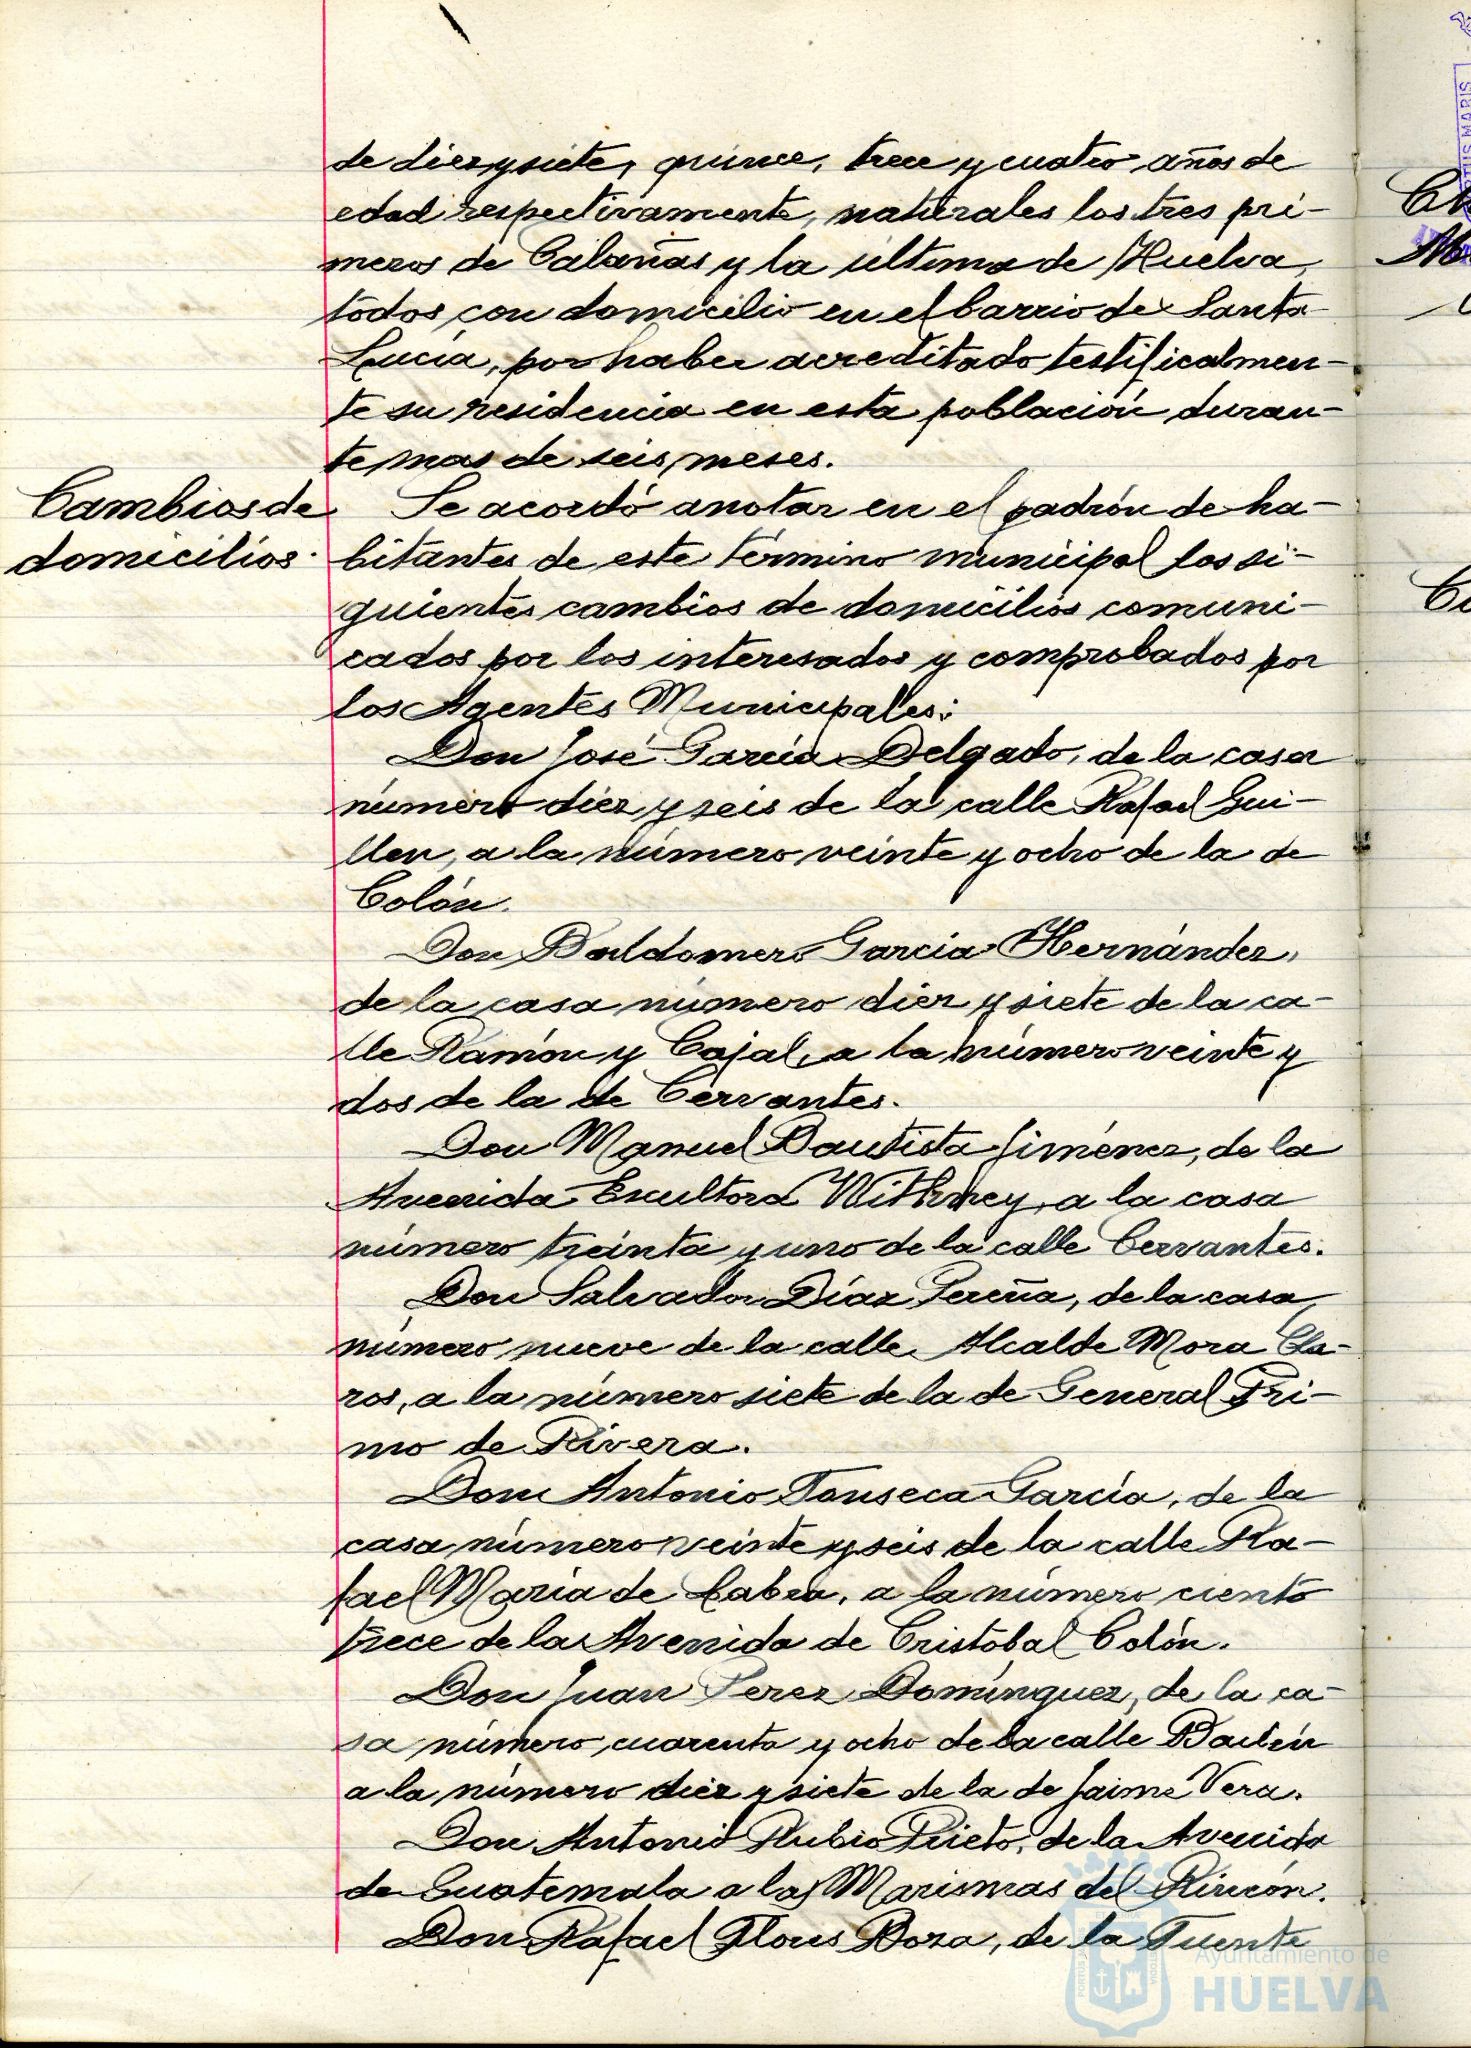 de diez y siete, quince, trece y cuatro años de
edad respectivamente, naturales los tres pri-
meros de Calañas y la última de Huelva,
todos con domicilio en el barrio de Santa
Lucía, por haber acreditado testificalmen-
te su residencia en esta población duran-
te mas de seis meses.
Cambios de
domicilios.
Se acordó anotar en el padrón de ha-
bitantes de este término municipal los si-
guientes cambios de domicilios comuni-
cados por los interesados y comprobados por
los Agentes Municipales:
Don José García Delgado, de la casa
número diez y seis de la calle Rafael Gui-
llen, a la número veinte y ocho de la de
Colón.
Don Baldomero García Hernández,
de la casa número diez y siete de la ca-
lle Ramón y Cajal, a la número veinte y
dos de la de Cervantes.
Don Manuel Bautista Jiménez, de la
Avenida Escultora Withney, a la casa
número treinta y uno de la calle Cervantes.
Don Salvador Díaz Pereña, de la casa
número nueve de la calle Alcalde Mora Cla-
ros, a la número siete de la de General Pri-
mo de Rivera.
Don Antonio Fonseca García, de la
casa número veinte y seis de la calle Ra-
fael María de Labra, a la número ciento
trece de la Avenida de Cristóbal Colón.
Don Juan Perez Domínguez, de la ca-
sa número cuarenta y ocho de la calle Bailén
a la número diez y siete de la de Jaime Vera.
Don Antonio Rubio Prieto, de la Avenida
de Guatemala a las Marismas del Rincón.
Don Rafael Flores Boza, de la Fuente
Ayuntamiento de
HUELVA